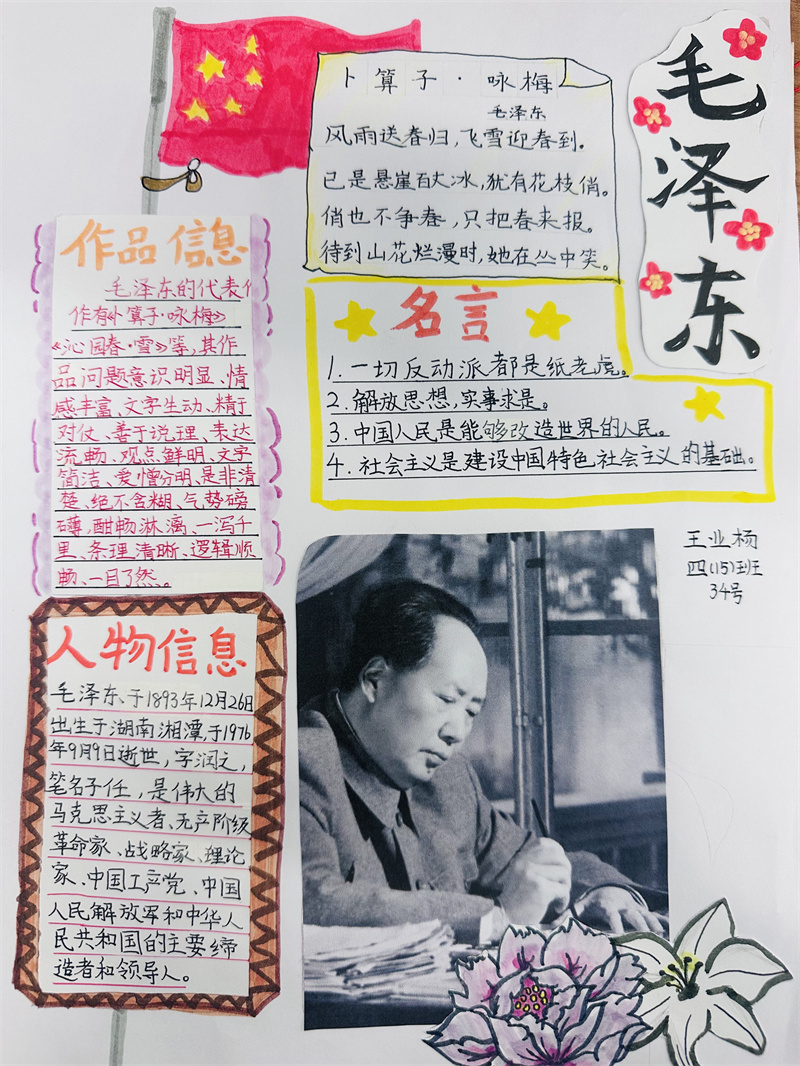 卜算子·咏梅
毛泽东
风雨送春归,飞雪迎春到。
已是悬崖百丈冰,犹有花枝俏。
俏也不争春,只把春来报。
待到山花烂漫时,她在丛中笑。
毛泽东
作品信息
毛泽东的代表作
作有《卜算子·咏梅》
《沁园春·雪》等,其作
品问题意识明显、情
感丰富、文字生动、精于
对仗、善于说理、表达
流畅、观点鲜明、文字
简洁、爱憎分明、是非清
楚、绝不含糊、气势磅
礴,酣畅淋漓、一泻千
里、条理清晰、逻辑顺
畅、一目了然。
名言
1.一切反动派都是纸老虎。
2.解放思想,实事求是。
3.中国人民是能够改造世界的人民。
4.社会主义是建设中国特色社会主义的基础。
人物信息
毛泽东、于1893年12月26日
出生于湖南湘潭,于1976
年9月9日逝世,字润之,
笔名子任,是伟大的
马克思主义者、无产阶级
革命家、战略家、理论
家、中国工产党、中国
人民解放军和中华人
民共和国的主要缔
造者和领导人。
王业杨
四(15)班
34号